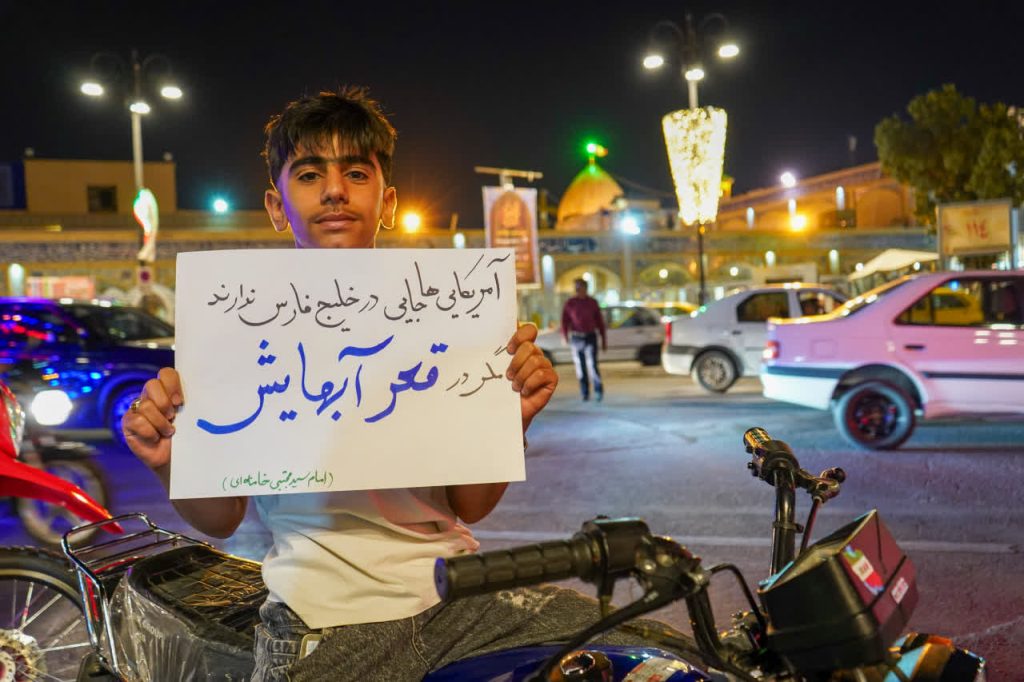 آمریکایی‌ها جایی در خلیج فارس ندارند
مگر در قعر آبهایش
(امام سید مجتبی خامنه‌ای)
۱۱۴